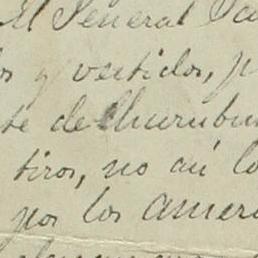 El General
os y vestidos, p
te de Churubu
tiros, no así lo
por los Ameri